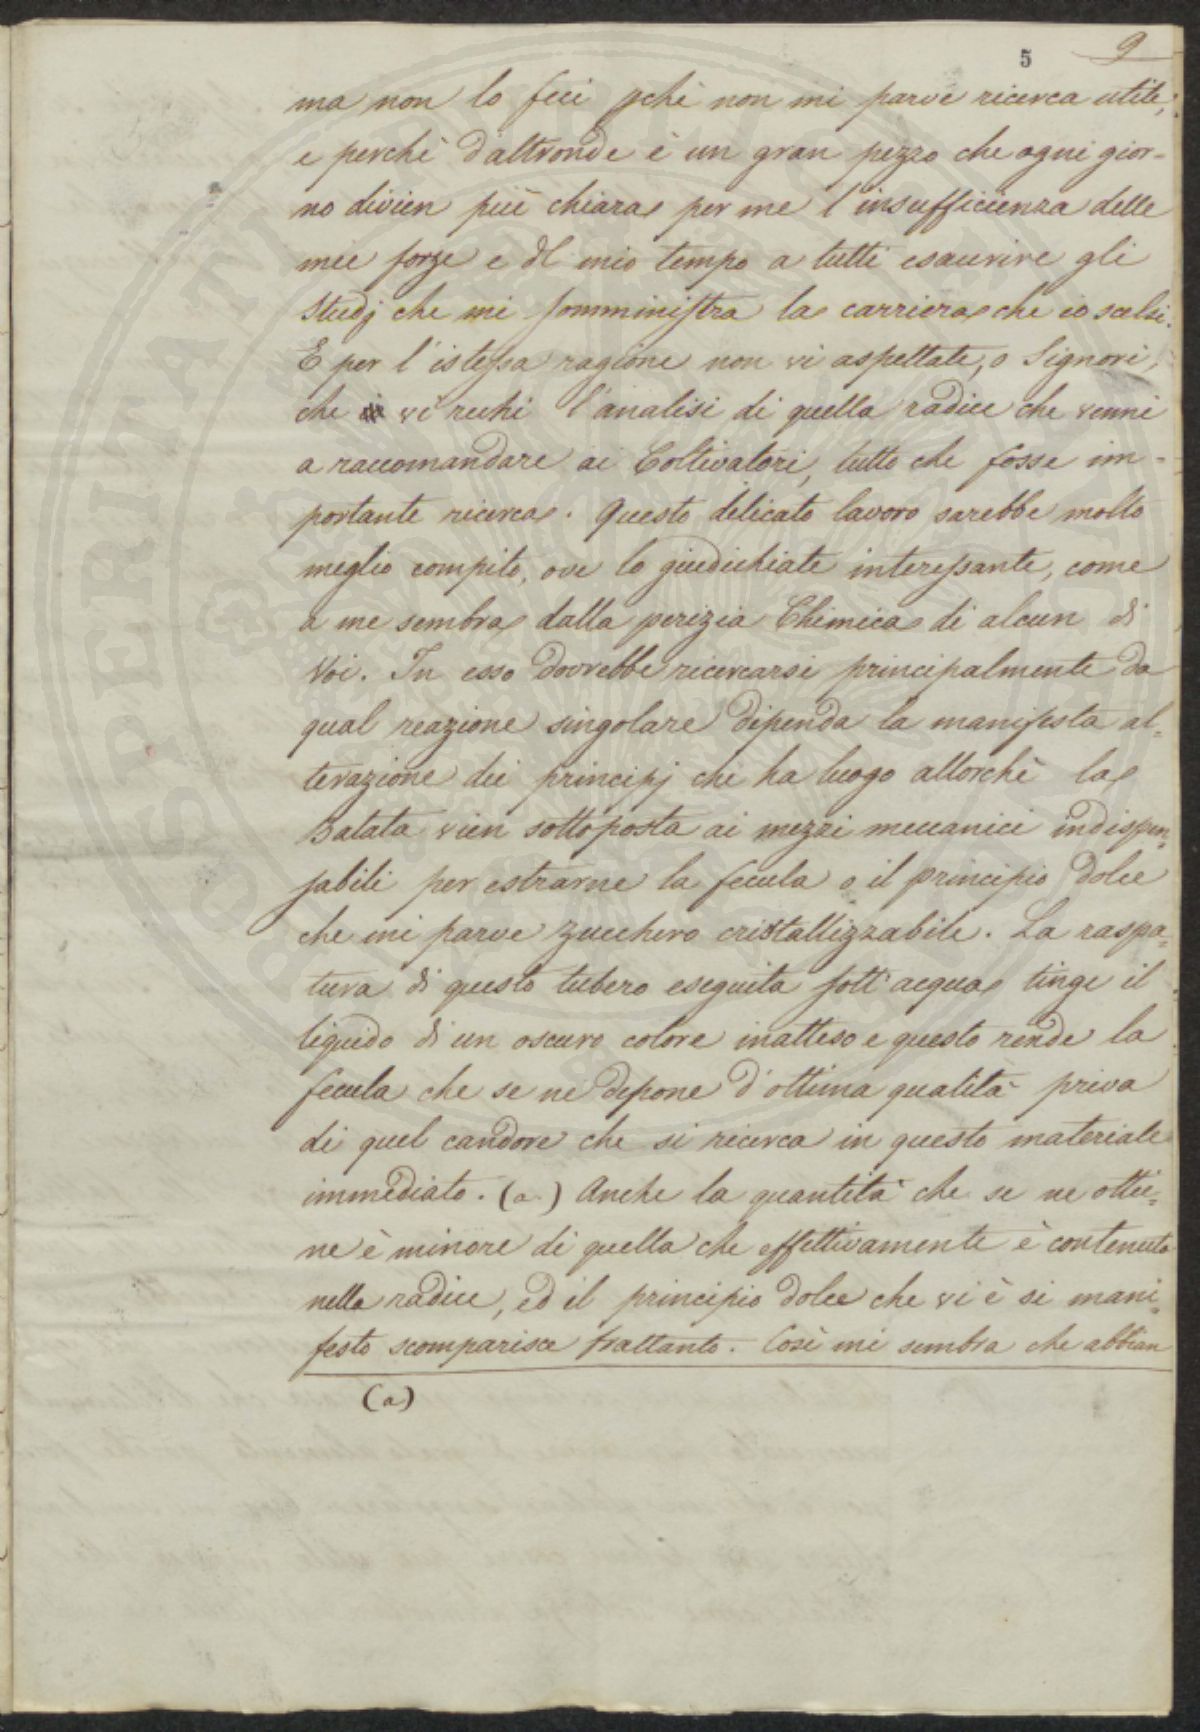 5 9
ma non lo feci pchè non mi parve ricerca utile,
e perchè d'altronde è un gran pezzo che ogni gior-
no divien più chiara per me l'insufficienza delle
mie forze e del mio tempo a tutti esaurire gli
Studj che mi somministra la carriera che io scelsi.
E per l'istessa ragione non vi aspettate, o Signori,
che vi rechi l'analisi di quella radice che venni
a raccomandare ai Coltivatori, tutto che fosse im-
portante ricerca. Questo delicato lavoro sarebbe molto
meglio compito, ove lo giudichiate interessante, come
a me sembra dalla perizia Chimica di alcun di
Voi. In esso dovrebbe ricercarsi principalmente da
qual reazione singolare dipenda la manifesta al-
terazione dei principj che ha luogo allorchè la
Batata vien sottoposta ai mezzi meccanici indispen-
sabili per estrarne la fecula o il principio dolce
che mi parve zucchero cristallizzabile. La raspa-
tura di questo tubero eseguita sott'acqua tinge il
liquido di un oscuro colore inatteso e questo rende la
fecula che se ne depone d'ottima qualità priva
di quel candore che si ricerca in questo materiale
immediato. (a) Anche la quantità che se ne ottie-
ne è minore di quella che effettivamente è contenuta
nella radice, ed il principio dolce che vi è si mani-
festo scomparisce frattanto. Così mi sembra che abbian
(a)
SPERITATI